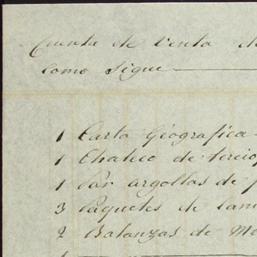 Cuenta de Venta de
como sigue
1 Carta Geografica
1 Chaleco de tercio
1 par argollas de
3 paquetes de
2 Balanzas de Me
1